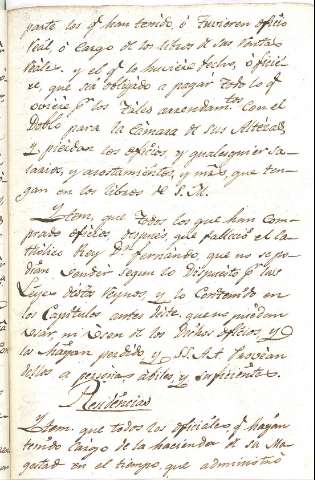 parte los q han tenido, ó tuvieren oficio
Real, ó cargo de los libros de sus Rentas
Reales. y el q lo huviere fecho, ó ficie
re, que sea obligado a pagar todo lo q
oviere por los tales arrendamtos con el
Doblo para la Cámara de sus Altezas,
y pierdan los oficios, y qualesquier sa-
larios, y acostamientos, y mrs, que ten-
gan en los libros de S. M.
Ytem, que todos los que han Com-
prado oficios, despues, que falleció el Ca-
thólico Rey Dn. fernando, que no se po-
dian Vender segun lo dispuesto por las
Leyes destos Reynos, y lo Contenido en
los Capitulos antes deste, que no puedan
usar, ni usen de los Dichos oficios, y q
los Hayan perdido, y SS. AA. Provean
dellos a personas ábiles, y suficientes.
Residencias
Ytem. que todos los oficiales, q Hayan
tenido Cargo de la hacienda de su Ma-
gestad en el tiempo, que administró